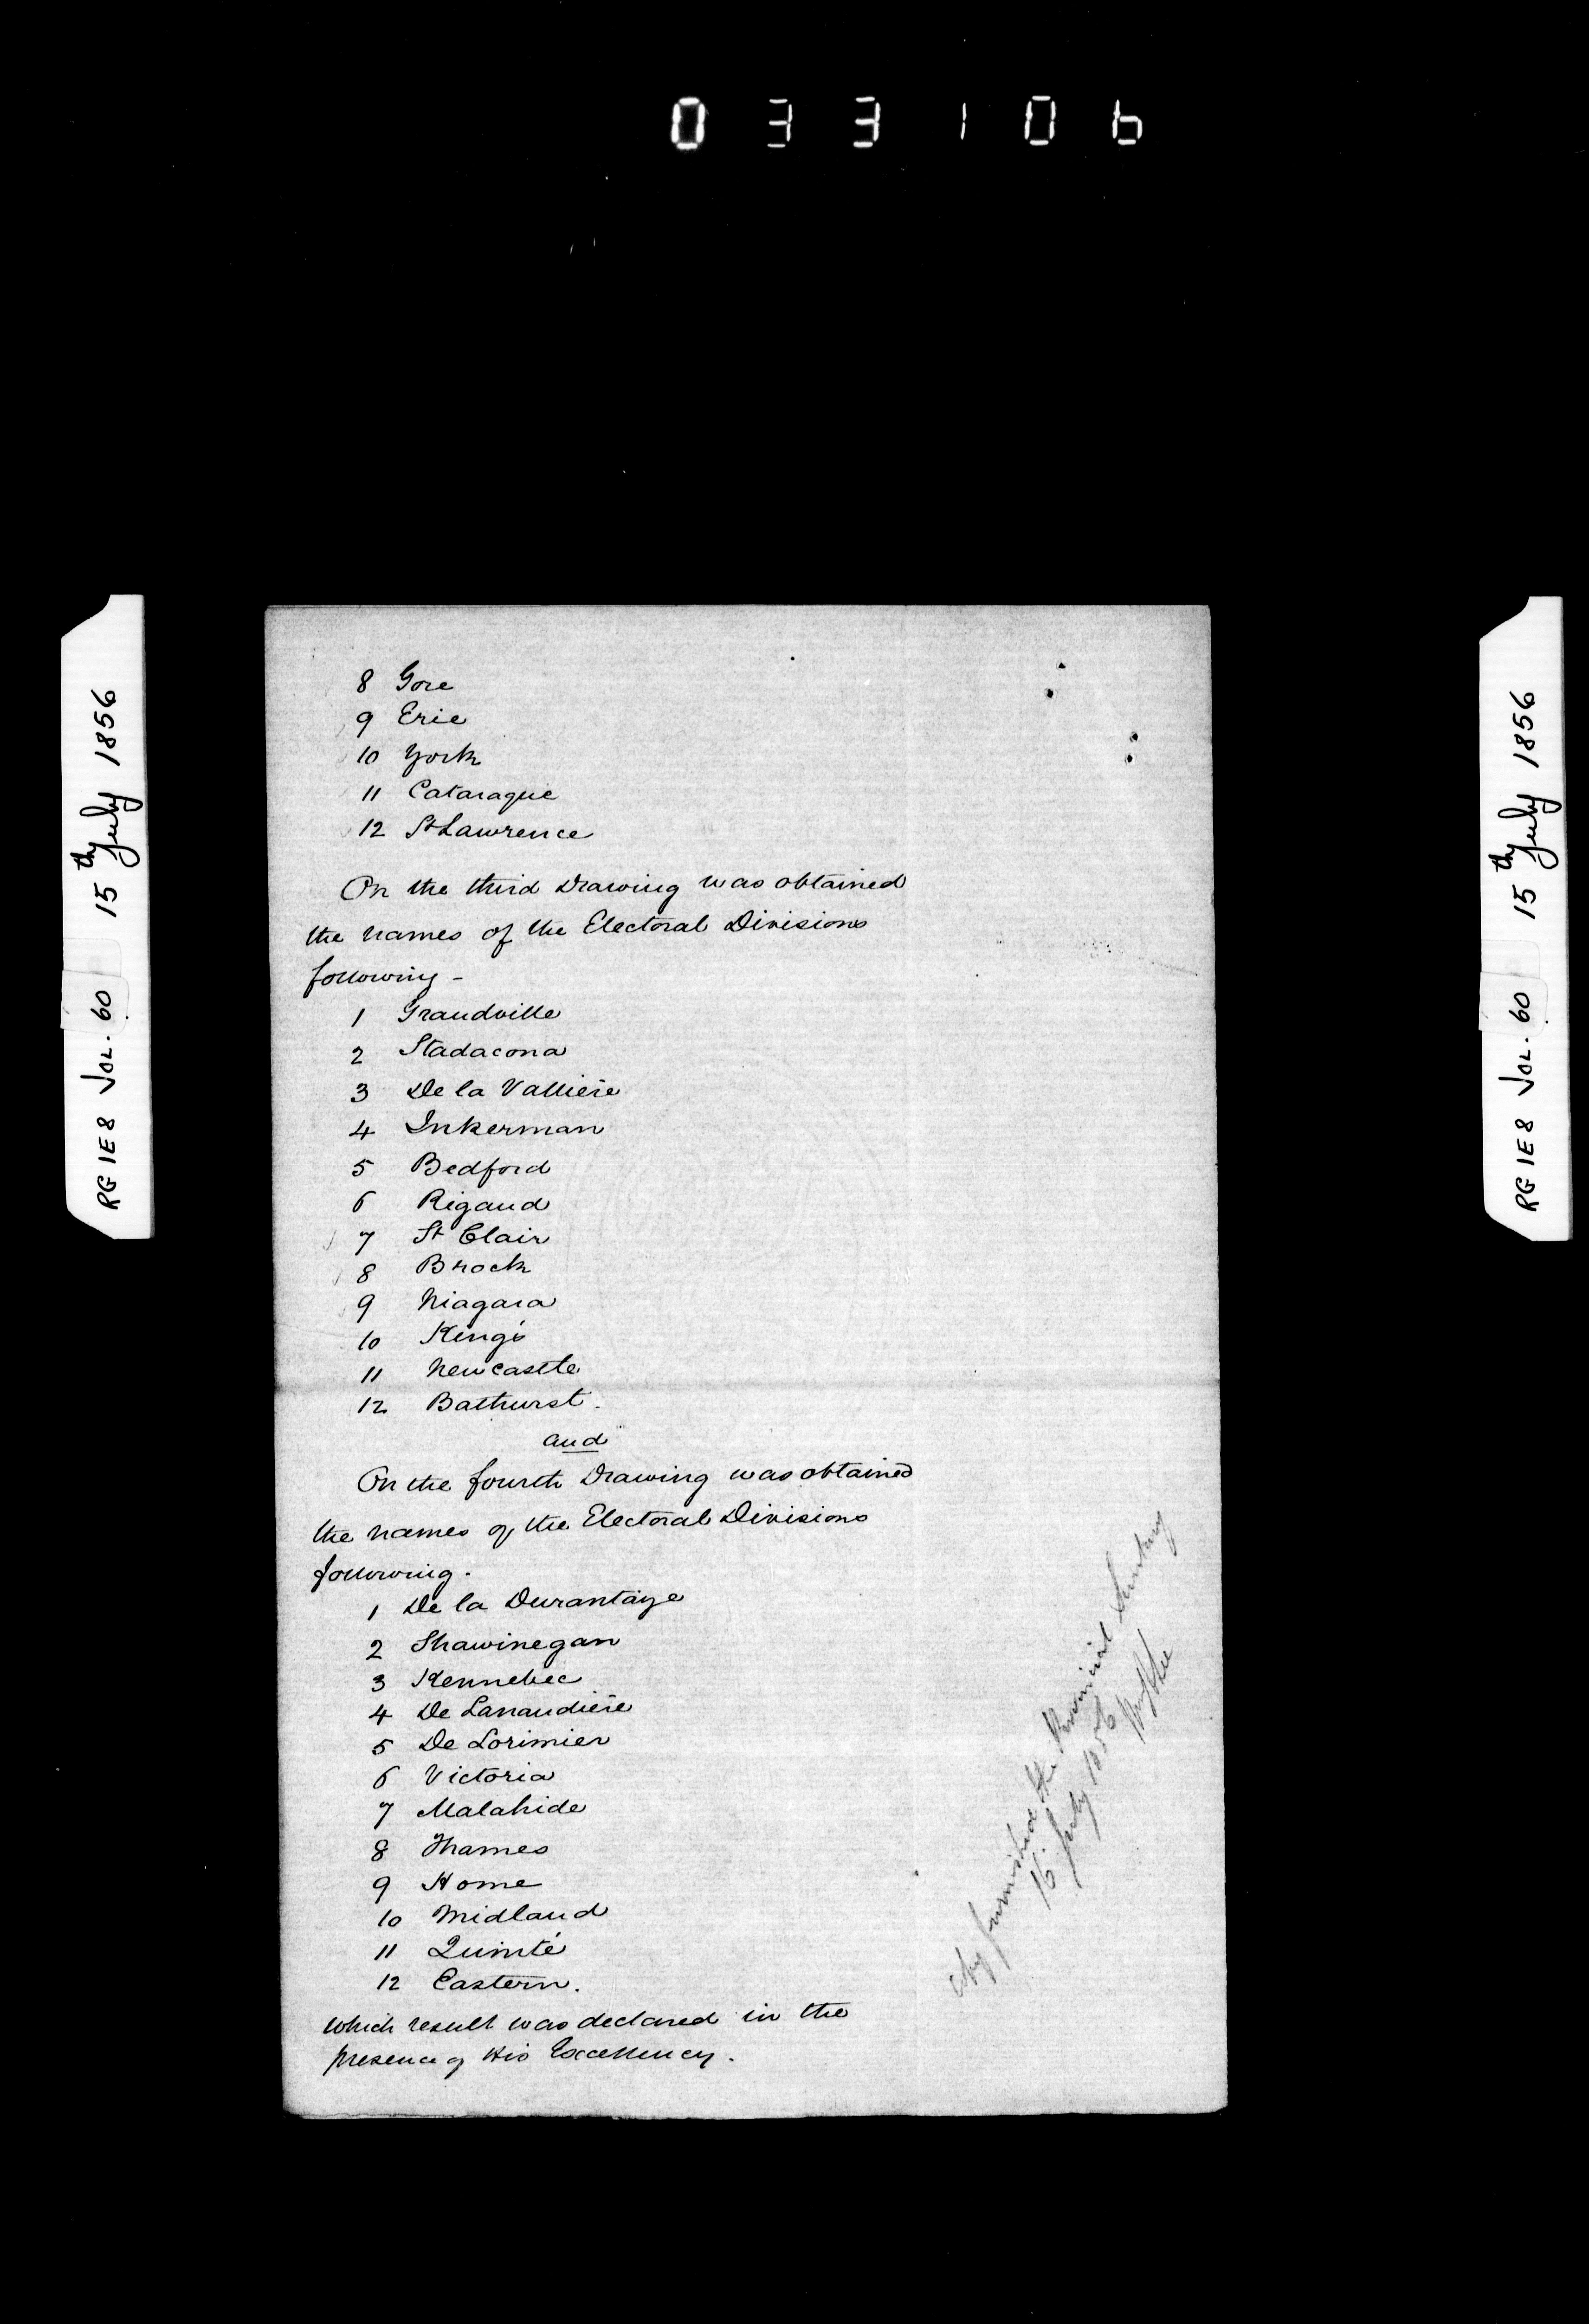 033106
RG 1E8 VOL. 60 15th July 1856
8 Gore
9 Erie
10 York
11 Cataraque
12 St Lawrence
On the third Drawing was obtained
the names of the Electoral Divisions
following -
1 Grandville
2 Stadacona
3 De la Vallière
4 Inkerman
5 Bedford
6 Rigaud
7 St Clair
8 Brock
9 Niagara
10 King's
11 Newcastle
12 Bathurst.
and
On the fourth Drawing was obtained
the names of the Electoral Divisions
following.
1 De la Durantaye
2 Shawinegan
3 Kennebec
4 De Lanaudière
5 De Lorimier
6 Victoria
7 Malahide
8 Thames
9 Home
10 Midland
11 Quinté
12 Eastern.
which result was declared in the
presence of His Excellency.
furnished the Provincial Secretary
16 July 1856
RG 1E8 VOL. 60 15th July 1856